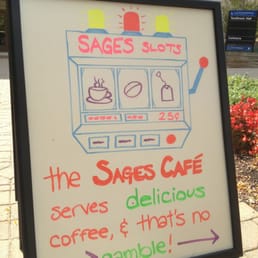 SAGES SLOTS
25¢
the SAGES CAFÉ
serves delicious
coffee, & that's no
gamble!